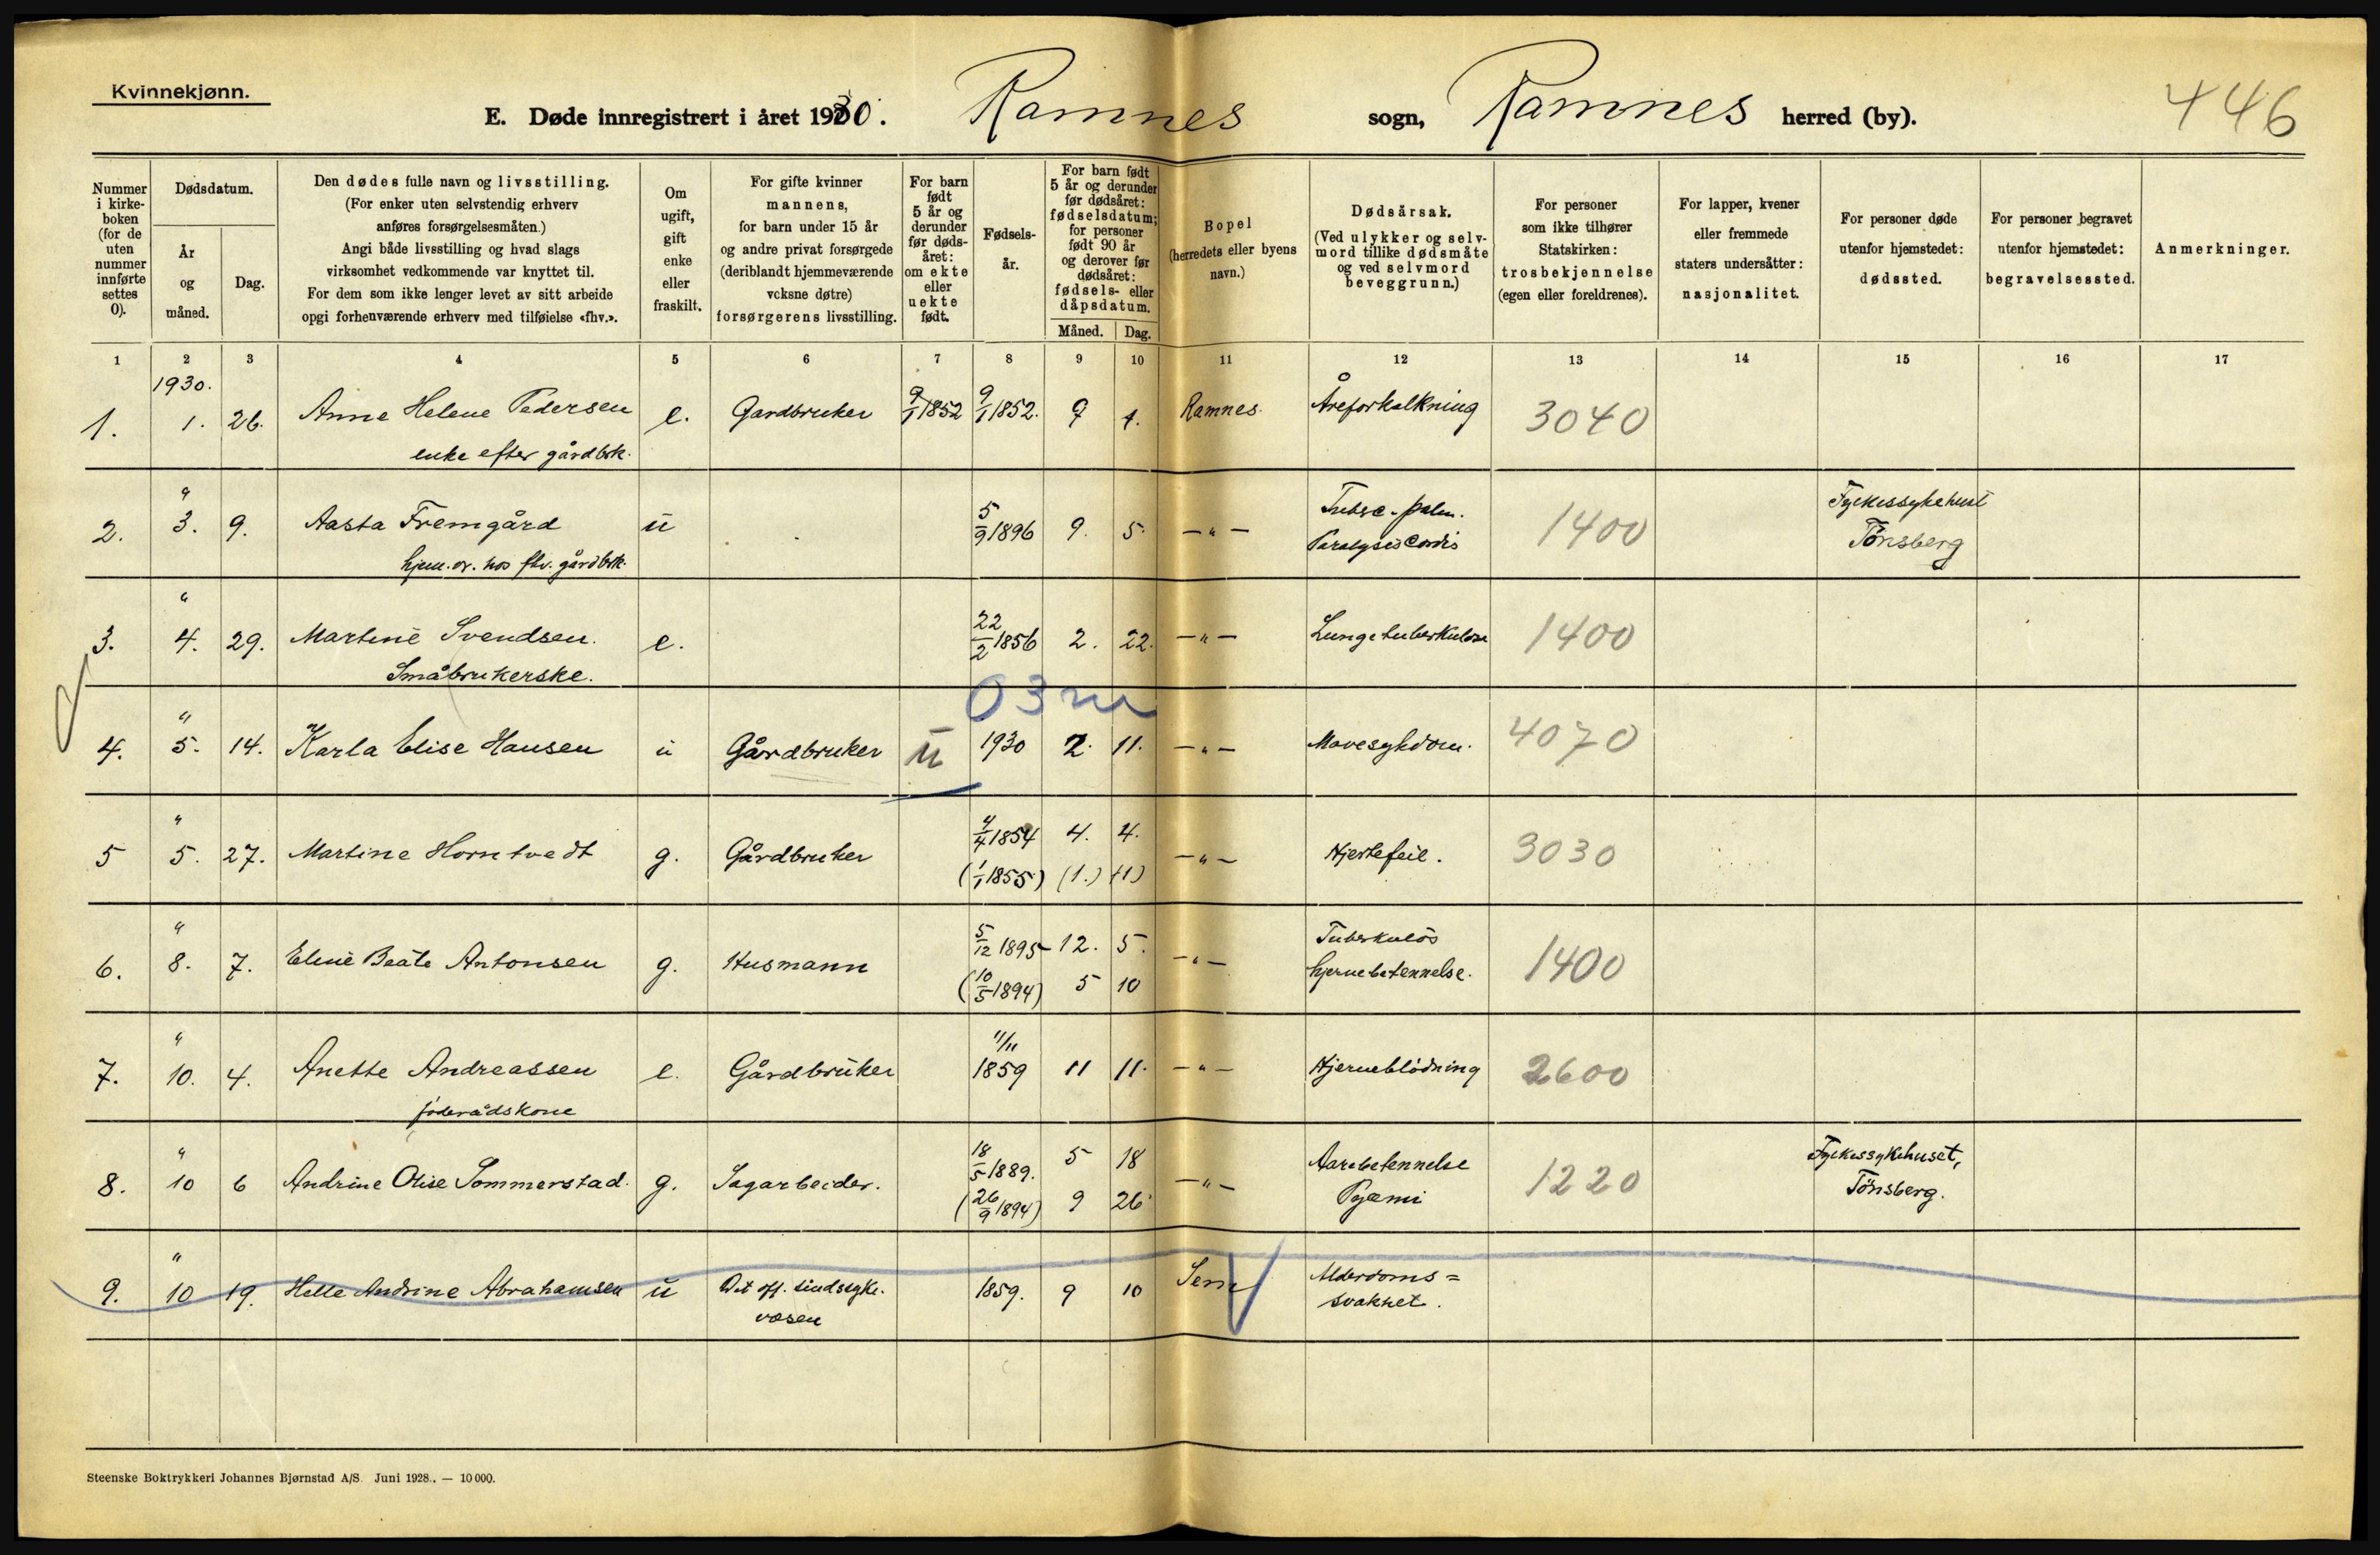 Kvinnekjønn.
E. Døde innregistrert i året 1930. Ramnes sogn, Ramnes herred (by).
446
Nummer i kirke- boken (for de uten nummer innførte settes 0).
Dødsdatum.
År og måned.
Dag.
Den dødes fulle navn og livsstilling.
(For enker uten selvstendig erhverv
anføres forsørgelsesmåten.)
Angi både livsstilling og hvad slags
virksomhet vedkommende var knyttet til.
For dem som ikke lenger levet av sitt arbeide
opgi forhenværende erhverv med tilføielse «fhv.».
Om ugift, gift enke eller fraskilt.
For gifte kvinner
mannens,
for barn under 15 år
og andre privat forsørgede
(deriblandt hjemmeværende
voksne døtre)
forsørgerens livsstilling.
For barn født 5 år og derunder før døds- året: om ekte eller uekte født.
Fødsels- år.
For barn født
5 år og derunder
før dødsåret:
fødselsdatum;
for personer
født 90 år
og derover før
dødsåret:
fødsels- eller
dåpsdatum.
Måned. Dag.
Bopel
(herredets eller byens
navn.)
Dødsårsak.
(Ved ulykker og selv-
mord tillike dødsmåte
og ved selvmord
beveggrunn.)
For personer
som ikke tilhører
Statskirken:
trosbekjennelse
(egen eller foreldrenes).
For lapper, kvener
eller fremmede
staters undersåtter:
nasjonalitet.
For personer døde
utenfor hjemstedet:
dødssted.
For personer begravet
utenfor hjemstedet:
begravelsessted.
Anmerkninger.
1 2 3 4 5 6 7 8 9 10 11 12 13 14 15 16 17
1930.
1. 1. 26. Anne Helene Pedersen e. Gardbruker 9/1 1852 9/1 1852. 9 1. Ramnes. Åreforkalkning 3040
enke efter gårdbrk.
2. " 3. 9. Aasta Fremgård u 5/9 1896 9. 5. —"— Tuberc. pulm. 1400 Fylkessykehuset
hjem. dr. hos fhv. gårdbrk. Paralysis Cordis Tönsberg
3. " 4. 29. Martine Svendsen. e. 22/2 1856 2. 22. —"— Lungetuberkulose 1400
Småbrukerske.
03 m
4. " 5. 14. Karla Elise Hansen u Gårdbruker u 1930 2. 11. —"— Mavesykdom. 4070
5 " 5. 27. Martine Horntvedt g. Gårdbruker 4/4 1854 4. 4. —"— Hjertefeil. 3030
(1/1 1855) (1.) (1)
6. " 8. 7. Eline Beate Antonsen g. Husmann 5/12 1895 12. 5. —"— Tuberkulös 1400
(10/5 1894) 5 10 hjernebetennelse.
7. " 10. 4. Anette Andreassen e. Gårdbruker 11/11 1859 11 11. —"— Hjerneblödning 2600
föderådskone
8. " 10 6 Andrine Olise Sommerstad. g. Sagarbeider. 18/5 1889. 5 18 —"— Aarebetennelse 1220 Fylkessykehuset,
(26/9 1894) 9 26 Pyæmi Tönsberg.
9. " 10 19. Helle Andrine Abrahamsen u Det off. sindssyke- 1859. 9 10 Sem Alderdoms=
vesen svakhet.
Steenske Boktrykkeri Johannes Bjørnstad A/S. Juni 1928. — 10 000.